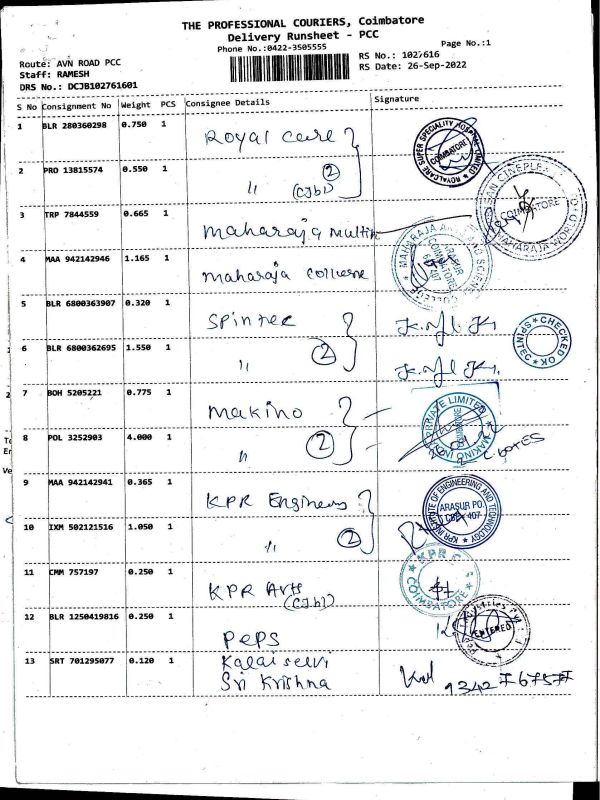 THE PROFESSIONAL COURIERS, Coimbatore
Delivery Runsheet - PCC
Phone No.:0422-3505555
Page No.:1
Route: AVN ROAD PCC
RS No.: 1027616
Staff: RAMESH
RS Date: 26-Sep-2022
DRS No.: DCJB102761601
S No Consignment No Weight PCS Consignee Details Signature
1 BLR 280360298 0.750 1 Royal care
ROYALCARE SUPER SPECIALITY HOSPITAL LIMITED COIMBATORE
2 PRO 13815574 0.550 1 " (CJB1) 2
COIMBATORE MAHARAJA WORLD
3 TRP 7844559 0.665 1 maharaja multi
4 MAA 942142946 1.165 1 maharaja college
ARASUR COIMBATORE 407
5 BLR 6800363907 0.320 1 Spintec
CHECKED OK SPINTEC
6 BLR 6800362695 1.550 1 " 2
7 BOH 5205221 0.775 1 Makino
MAKINO INDIA PRIVATE LIMITED COIMBATORE
8 POL 3252903 4.000 1 " 2
9 MAA 942142941 0.365 1 KPR Engineers
KPR INSTITUTE OF ENGINEERING AND TECHNOLOGY ARASUR PO. CBE - 407
10 IXM 502121516 1.050 1 " 2
11 CMM 757197 0.250 1 KPR Arts (CJB1)
KPR COIMBATORE
12 BLR 1250419816 0.250 1 Peps
ENTERED
13 SRT 701295077 0.120 1 Kalaiselvi
Sri Krishna